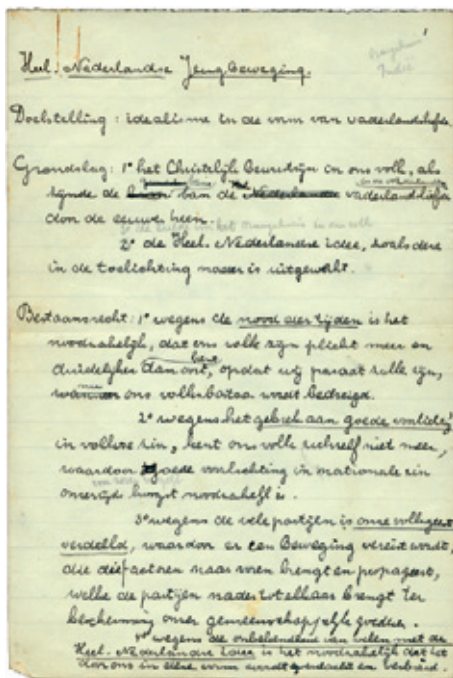 1
Oranjehuis
Heel. Nederlandse Jeugbeweging.
Doelstelling: idealisme in de vorm van vaderlandsliefde.
Grondslag: 1º het Christelijk Bewustzijn in ons volk, als
zijnde de van de Nederlandse vaderlandsliefde
door de eeuwen heen.
en de liefde van het oranjehuis in ons volk
2º de Heel. Nederlandse idee, zoals deze
in de toelichting nader is uitgewerkt.
Bestaansrecht: 1º wegens de nood der tijden is het
noodzakelijk, dat ons volk zijn plicht meer en
duidelijker dan ooit, kent opdat wij paraat zullen zijn,
ons volksbestaan wordt bedreigd.
2º wegens het gebrek aan goede voorlichting
in volkse zin, kent ons volk zichzelf niet meer,
waardoor goede voorlichting in nationale zin
onzerzijds hoogst noodzakelijk is.
3º wegens de vele partijen is onze volksgeest
verdeeld, waardoor er een Beweging vereist wordt,
die die factoren naar voren brengt en propageert,
welke de partijen nader tot elkaar brengt ter
bescherming onzer gemeenschappelijke goederen.
wegens de onbekendheid van velen met de
Heel. Nederlandse idee is het noodzakelijk dat het
door ons in deze vorm wordt en verbreid.